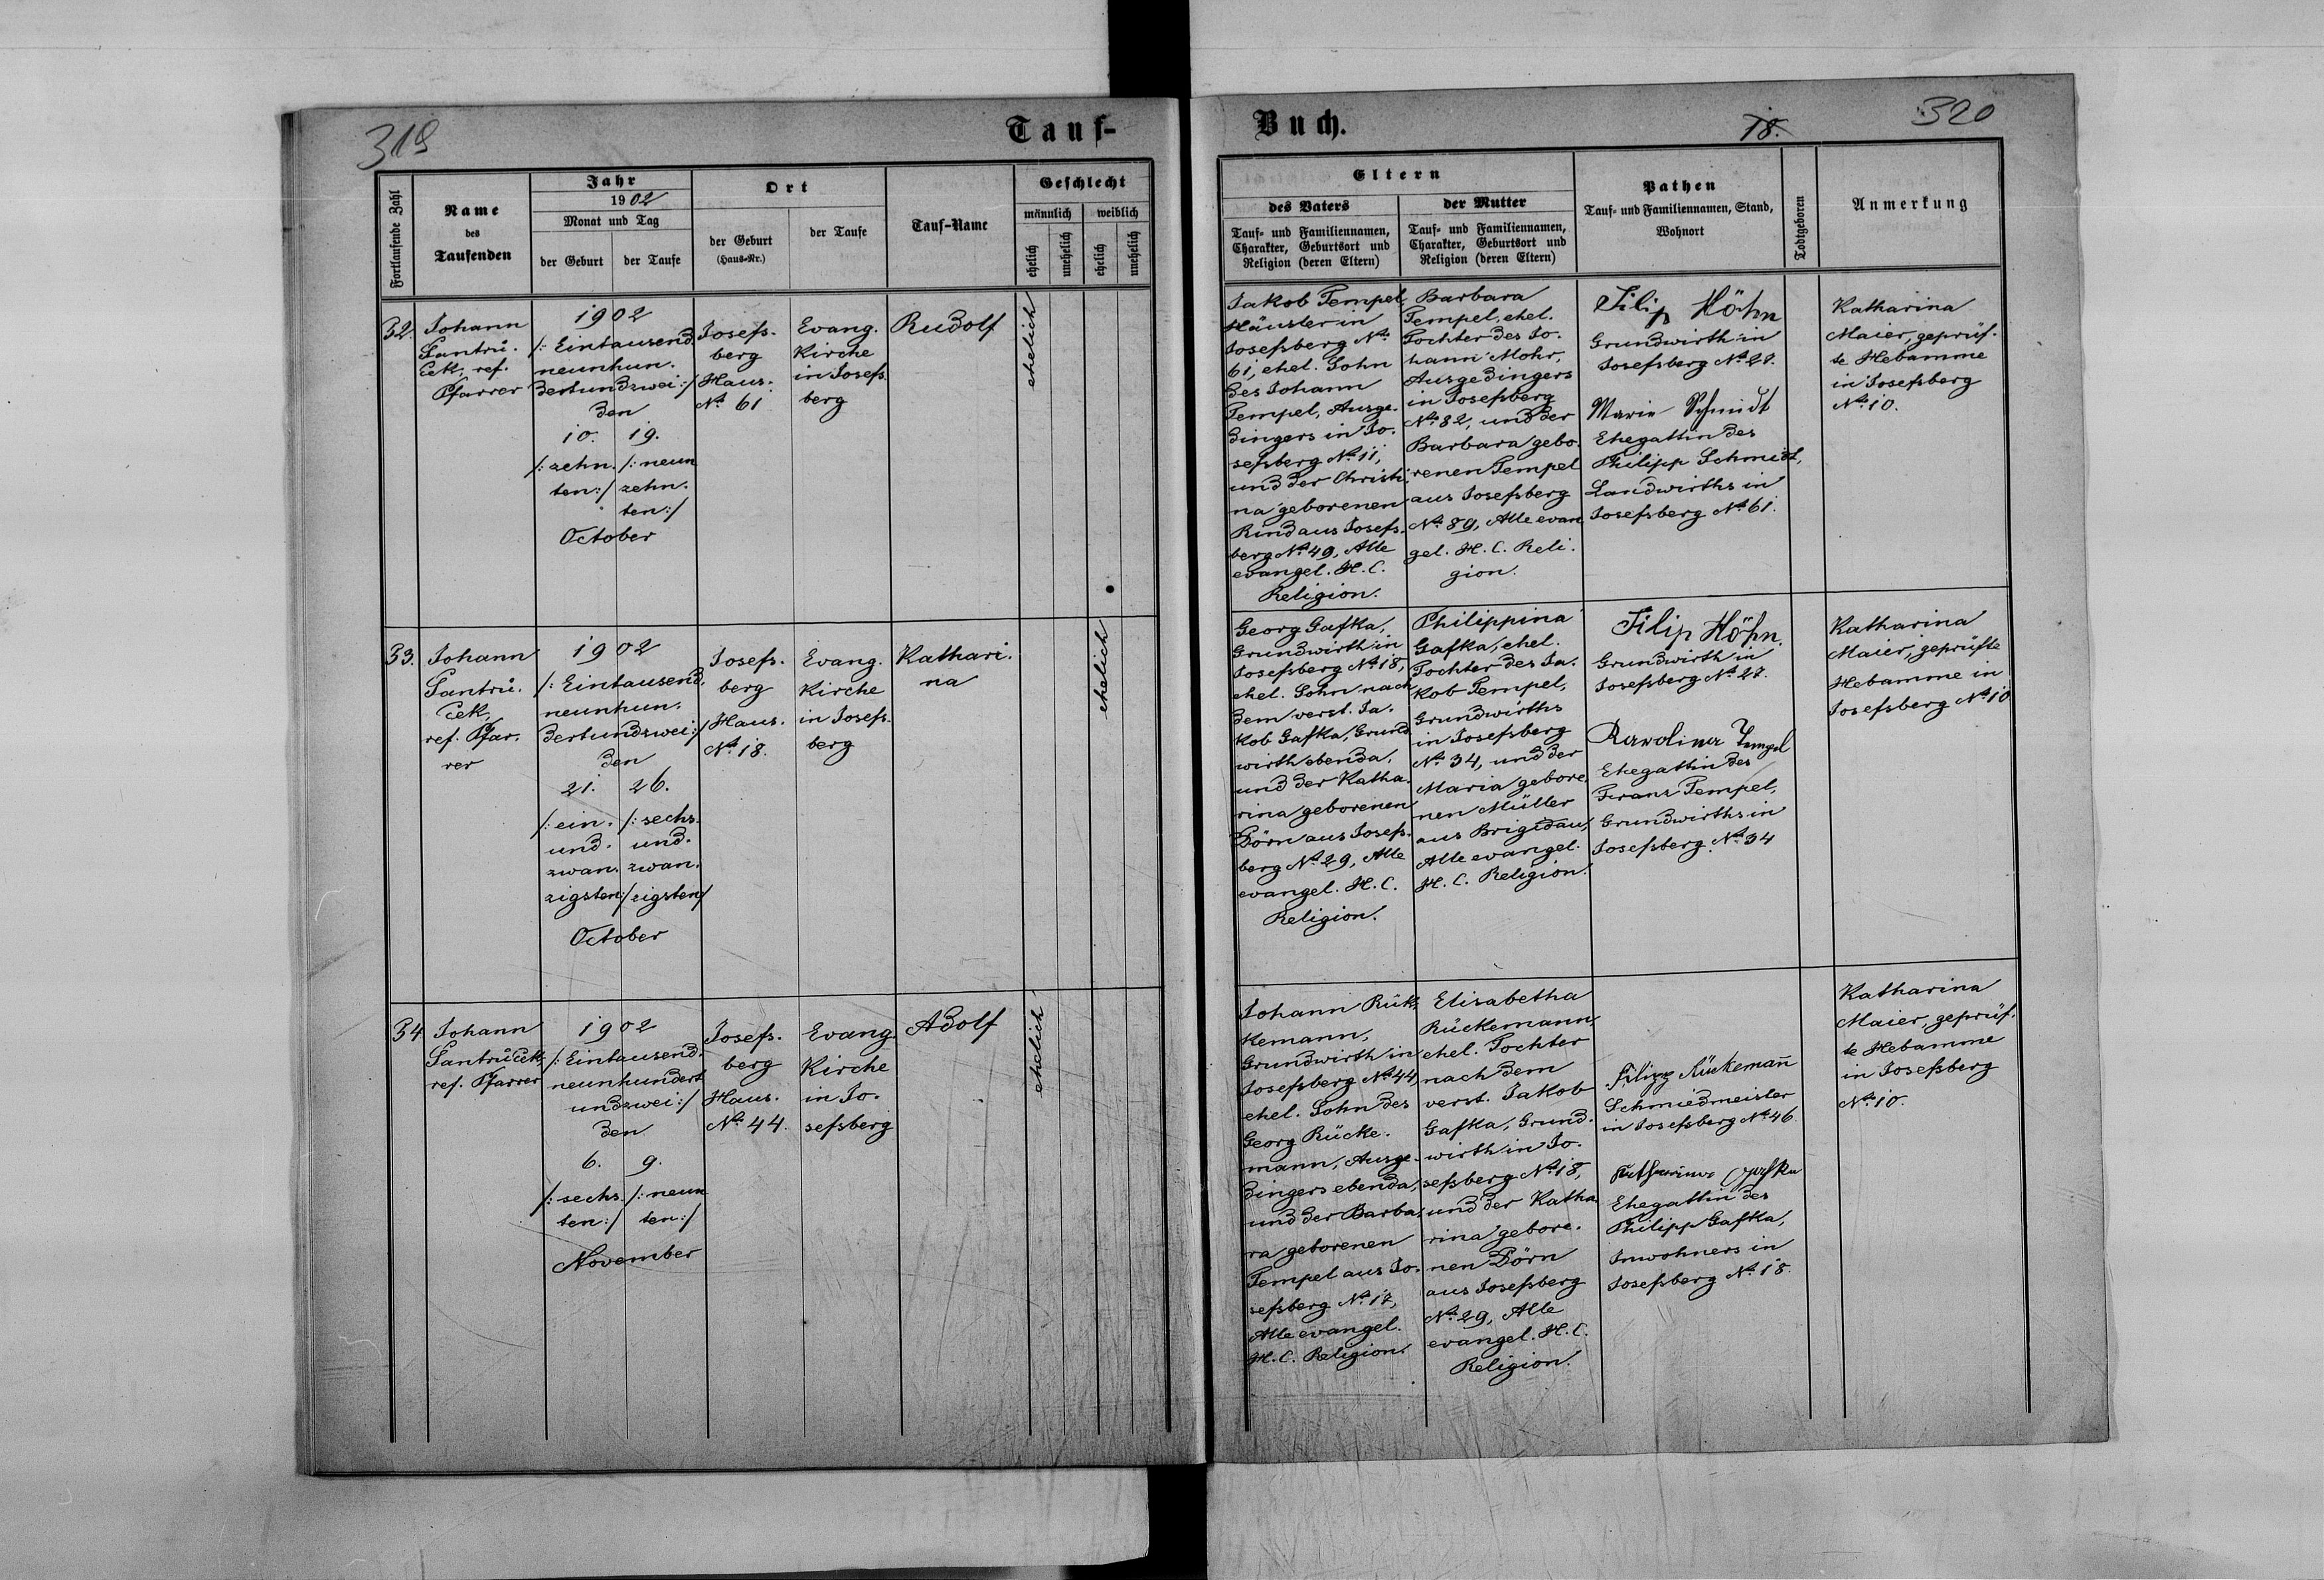 319
Tauf-
Fortlaufende Zahl
Name
des
Taufenden
Jahr
1902
Monat und Tag
der Geburt
der Taufe
Ort
der Geburt
(Haus-Nr.)
der Taufe
Tauf-Name
Geschlecht
männlich
weiblich
ehelich
unehelich
ehelich
unehelich
32.
Johann
Jantrů-
ček, ref.
Pfarrer
1902
/: Eintausend
neunhun-
dertundzwei :/
den
10. 19.
/: zehn- /: neun
ten :/ zehn-
ten :/
October
Josefs-
berg
Haus-
No 61
Evang.
Kirche
in Josefs-
berg
Rudolf
ehelich
33.
Johann
Jantrů-
ček,
ref. Pfar-
rer
1902
/: Eintausend-
neunhun-
dertundzwei :/
den
21. 26.
/: ein- /: sechs-
und- und-
zwan- zwan-
zigsten :/ zigsten /
October
Josefs-
berg
Haus-
No 18.
Evang.
Kirche
in Josefs-
berg
Kathari-
na
ehelich
34.
Johann
Jantrůček,
ref. Pfarrer
1902
/: Eintausend-
neunhundert
undzwei :/
den
6. 9.
/: sechs- /: neun
ten :/ ten :/
November
Josefs-
berg
Haus-
No 44.
Evang.
Kirche
in Jo-
sefsberg
Adolf
ehelich
Buch.
18.
320
Eltern
des Vaters
Tauf- und Familiennamen,
Charakter, Geburtsort und
Religion (deren Eltern)
der Mutter
Tauf- und Familiennamen,
Charakter, Geburtsort und
Religion (deren Eltern)
Pathen
Tauf- und Familiennamen, Stand,
Wohnort
Todtgeboren
Anmerkung
Jakob Tempel,
Häusler in
Josefsberg No
61, ehel. Sohn
des Johann
Tempel, Ausge-
dingers in Jo-
sefsberg No 11,
und der Christi-
na geborenen
Rind aus Josefs-
berg No 49, Alle
evangel. H. C.
Religion.
Barbara
Tempel, ehel.
Tochter des Jo-
hann Mohr,
Ausgedingers
in Josefsberg
No 82, und der
Barbara gebo-
renen Tempel
aus Josefsberg
No 89, Alle evan-
gel. H. C. Reli-
gion.
Filip Höhn
Grundwirth in
Josefsberg No 27.
Marie Schmidt
Ehegattin des
Philipp Schmidt,
Landwirths in
Josefsberg No 61.
Katharina
Maier, geprüf-
te Hebamme
in Josefsberg
No 10.
Georg Gafka,
Grundwirth in
Josefsberg No 18,
ehel. Sohn nach
dem verst. Ja-
kob Gafka, Grund-
wirth ebenda,
und der Katha-
rina geborenen
Dörn aus Josefs-
berg No 29, Alle
evangel. H. C.
Religion.
Philippina
Gafka, ehel.
Tochter des Ja-
kob Tempel,
Grundwirths
in Josefsberg
No 34, und der
Maria gebore-
nen Müller
aus Brigidau,
Alle evangel.
H. C. Religion.
Filip Höhn.
Grundwirth in
Josefsberg No 27.
Karolina Tempel
Ehegattin des
Franz Tempel,
Grundwirths in
Josefsberg No 34
Katharina
Maier, geprüfte
Hebamme in
Josefsberg No 10
Johann Rük-
kemann,
Grundwirth in
Josefsberg No 44,
ehel. Sohn des
Georg Rücke-
mann, Ausge-
dingers ebenda,
und der Barba-
ra geborenen
Tempel aus Jo-
sefsberg No 17,
Alle evangel.
H. C. Religion.
Elisabetha
Rückemann,
ehel. Tochter
nach dem
verst. Jakob
Gafka, Grund-
wirth in Jo-
sefsberg No 18,
und der Katha-
rina gebore-
nen Dörn
aus Josefsberg
No 29, Alle
evangel. H. C.
Religion.
Filipp Rückemañ
Schmiedmeister
in Josefsberg No 46.
Katharina Gafka
Ehegattin des
Philipp Gafka,
Inwohners in
Josefsberg No 18.
Katharina
Maier, geprüf-
te Hebamme
in Josefsberg
No 10.